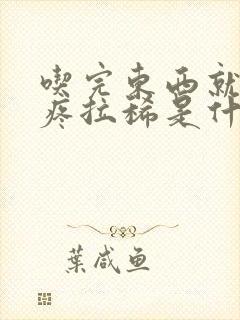 喫完東西就
疼拉稀是什
葉咸鱼